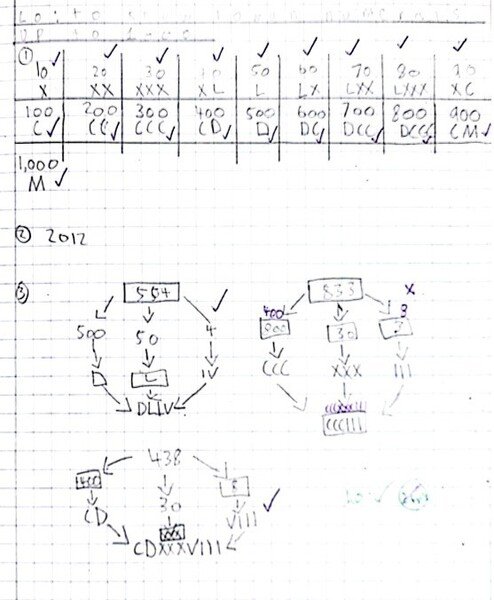 L.O: to
numerals
up to 1000
① 10 20 30 40 50 60 70 80 90
X XX XXX XL L LX LXX LXXX XC
100 200 300 400 500 600 700 800 900
C CC CCC CD D DC DCC DCCC CM
1,000
M
② 2012
③ 554 833
500 50 4 30 3
D L IV CCC XXX III
DLIV
CCCIII
438
30 8
CD XXX VIII
CDXXXVIII